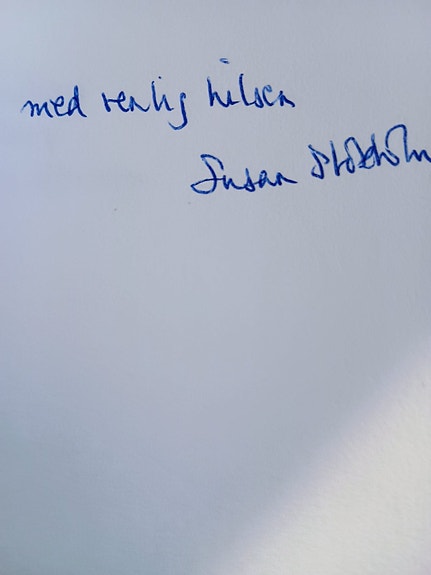 med venlig hilsen
Susan Stokholm